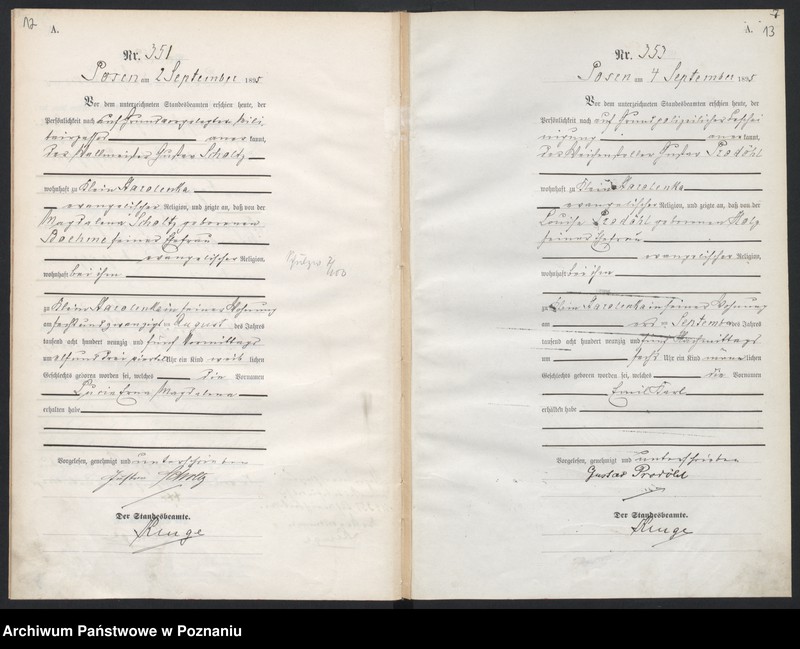 12
A.
Nr. 351
Posen am 2 September 1895
Vor dem unterzeichneten Standesbeamten erschien heute, der
Persönlichkeit nach auf Grund vorgelegter Mili
tairpaß anerkannt,
der Stallmeister Gustav Scholtz
wohnhaft zu Klein Starolenka
evangelischer Religion, und zeigte an, daß von der
Magdalena Scholtz geborenen
Boehme seiner Ehefrau
evangelischer Religion,
wohnhaft bei ihm
zu Klein Starolenka in seiner Wohnung
am sechs und zwanzigsten August des Jahres
tausend acht hundert neunzig und fünf Vormittags
um elf und drei viertel Uhr ein Kind weiblichen
Geschlechts geboren worden sei, welches die Vornamen
Lucie Erna Magdalena
erhalten habe
Vorgelesen, genehmigt und unterschrieben
Gustav Scholtz
Der Standesbeamte.
Runge
7
A. 13
Nr. 353
Posen am 4 September 1895
Vor dem unterzeichneten Standesbeamten erschien heute, der
Persönlichkeit nach auf Grund polizeilicher Beschei
nigung anerkannt,
der Weichensteller Gustav Prodöhl
wohnhaft zu Klein Starolenka
evangelischer Religion, und zeigte an, daß von der
Louise Prodöhl geborenen
seiner Ehefrau
evangelischer Religion,
wohnhaft bei ihm
zu Klein Starolenka in seiner Wohnung
am September des Jahres
tausend acht hundert neunzig und fünf Nachmittags
um sechs Uhr ein Kind männlichen
Geschlechts geboren worden sei, welches die Vornamen
Emil Karl
erhalten habe
Vorgelesen, genehmigt und unterschrieben
Gustav Prodöhl
Der Standesbeamte.
Runge
Archiwum Państwowe w Poznaniu